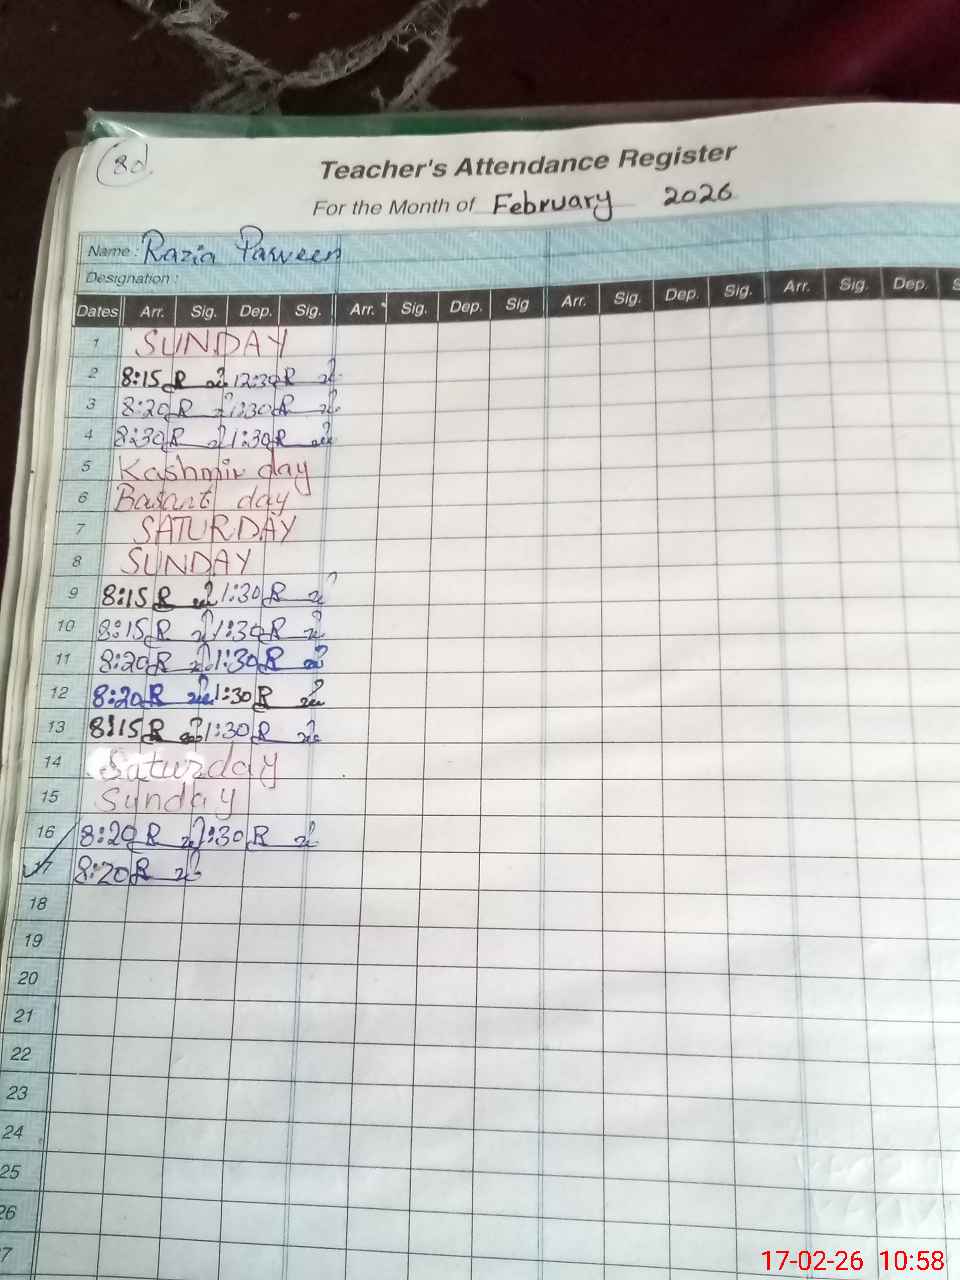 80
Teacher's Attendance Register
For the Month of February 2026
Name : Razia Parveen
Designation :
Dates Arr. Sig. Dep. Sig. Arr. Sig. Dep. Sig Arr. Sig. Dep. Sig. Arr. Sig. Dep. S
1 SUNDAY
2 8:15 R 12:30 R
3 8:20 R 1:30 R
4 8:30 R 1:30 R
5 Kashmir day
6 Basant day
7 SATURDAY
8 SUNDAY
9 8:15 R 1:30 R
10 8:15 R 1:30 R
11 8:20 R 1:30 R
12 8:20 R 1:30 R
13 8:15 R 1:30 R
14 Saturday
15 Sunday
16 8:20 R 1:30 R
17 8:20 R
18
19
20
21
22
23
24
25
26
7
17-02-26 10:58